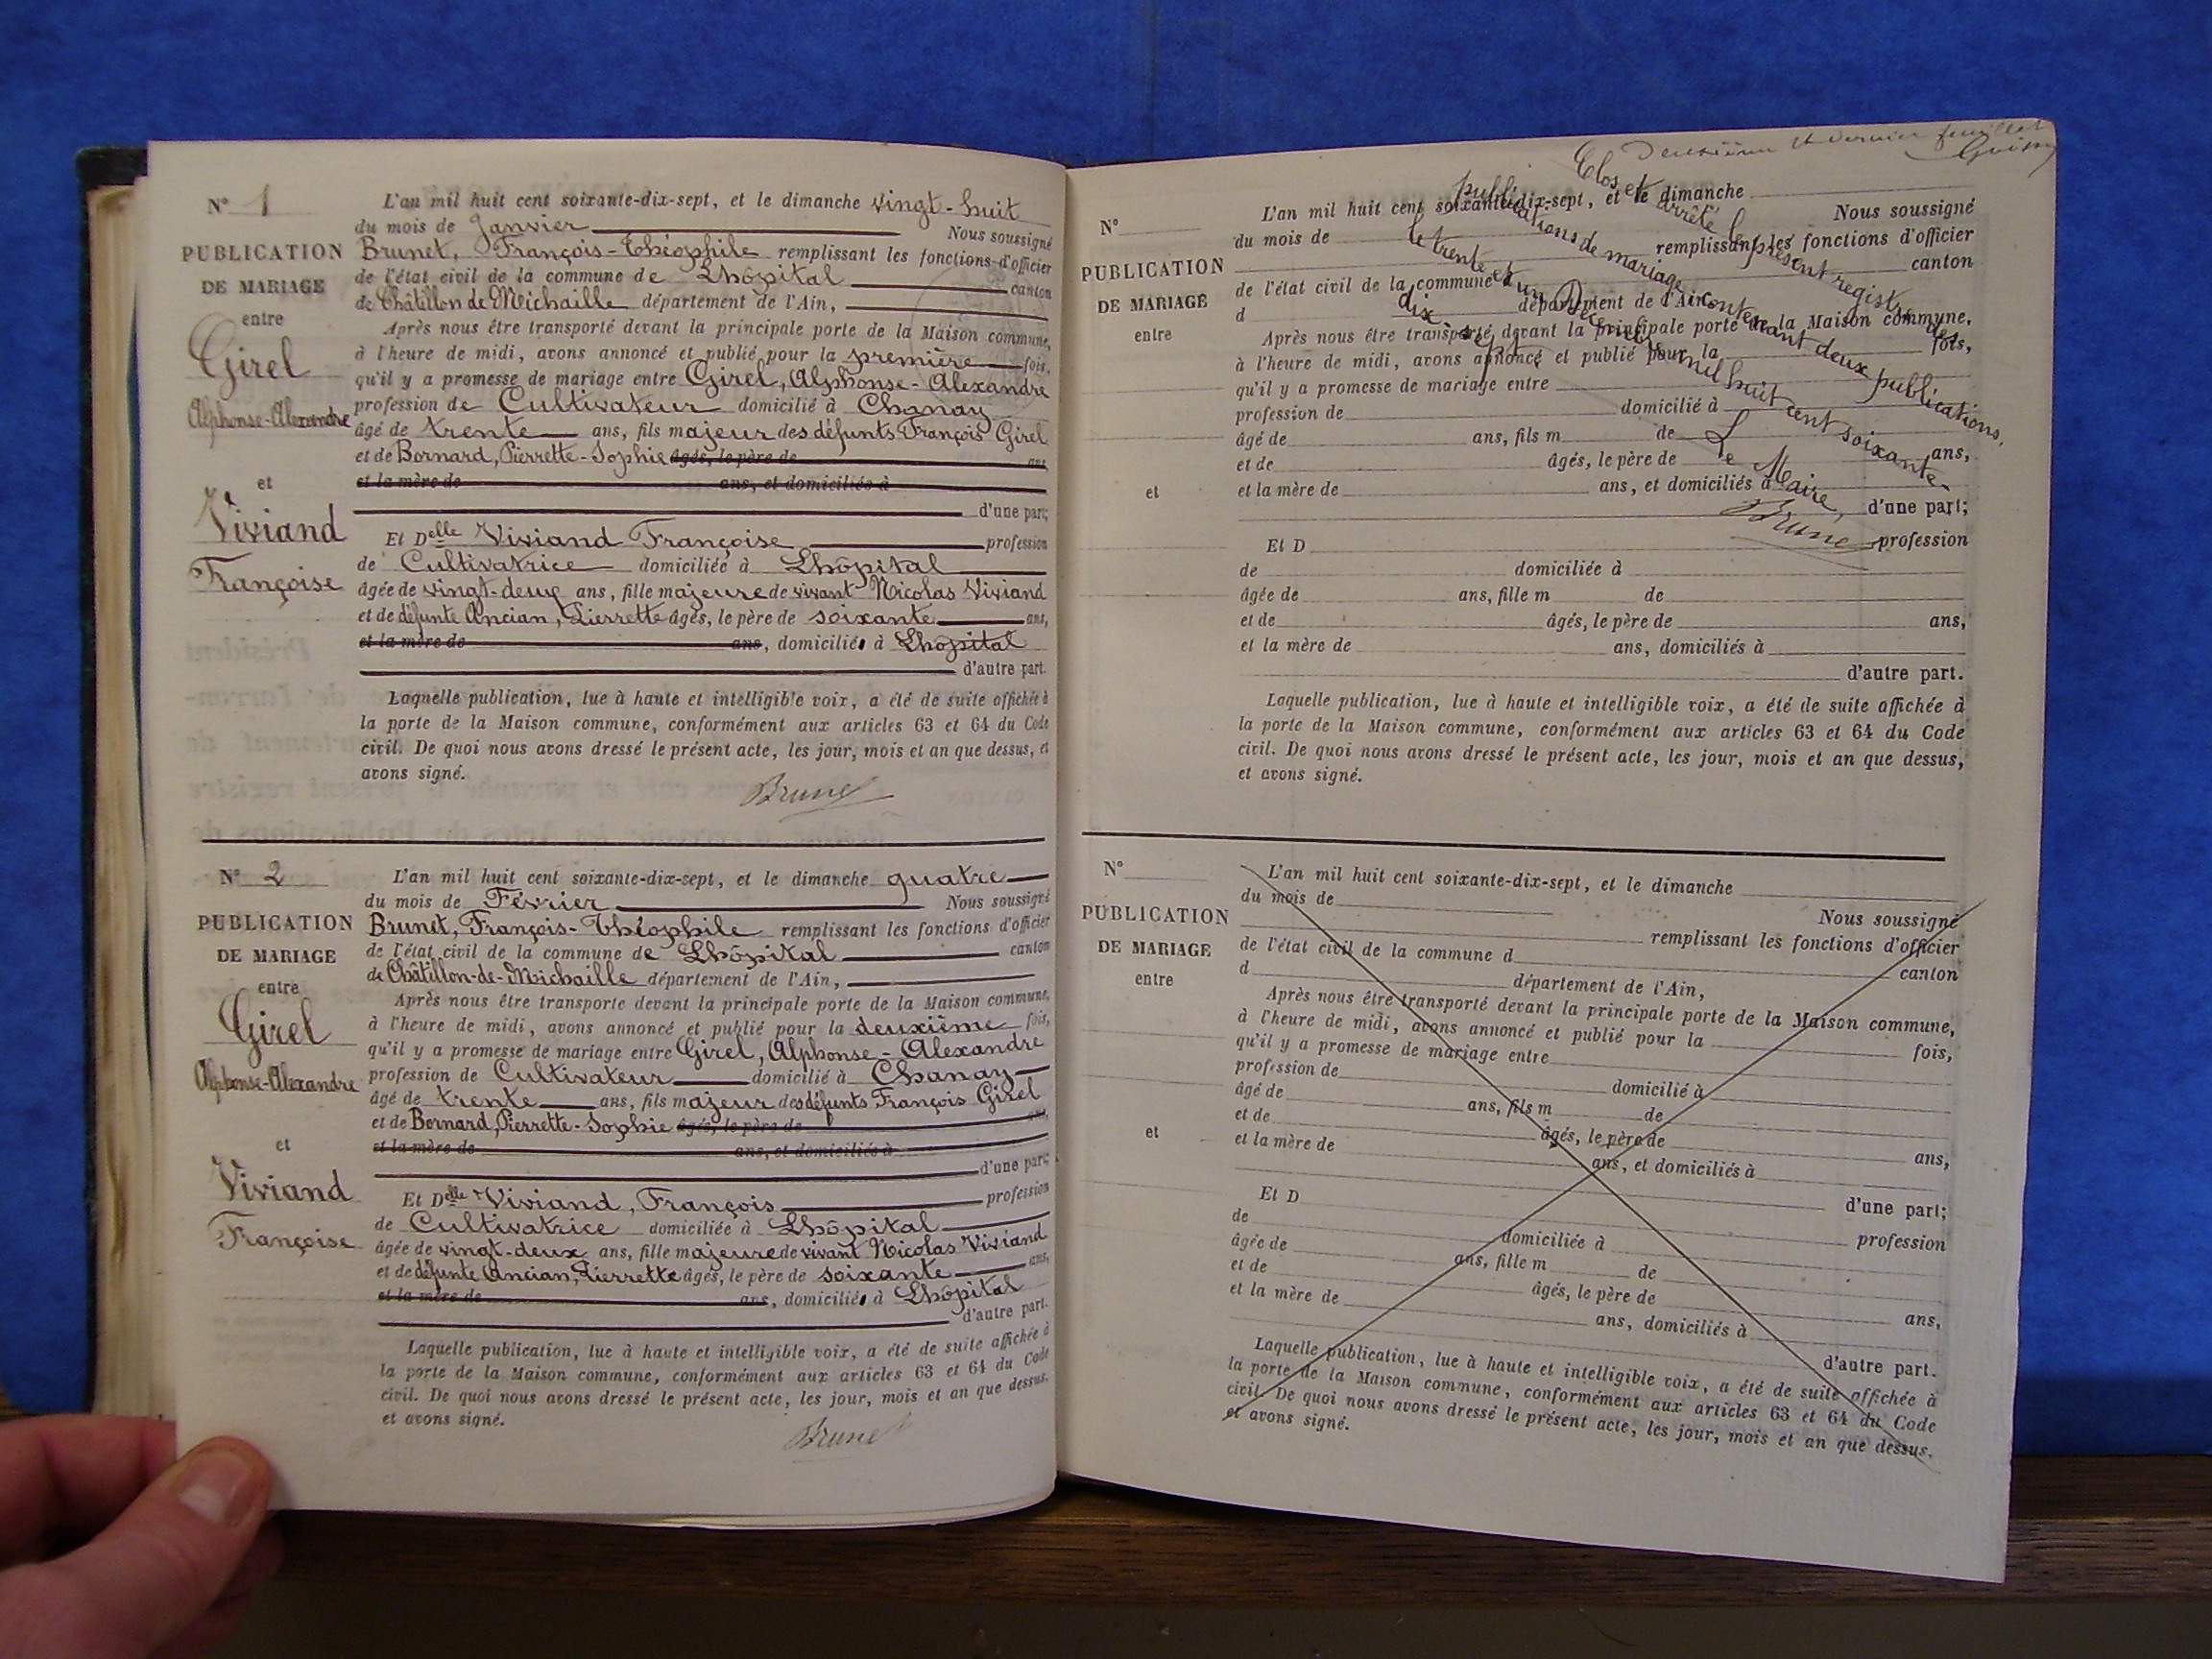 N° 1
PUBLICATION
DE MARIAGE
entre
Girel
Alphonse-Alexandre
et
Viviand
Françoise
L'an mil huit cent soixante-dix-sept, et le dimanche vingt-huit
du mois de Janvier Nous soussigné
Brunet, François-Théophile remplissant les fonctions d'officier
de l'état civil de la commune de Lhôpital canton
de Châtillon de Michaille département de l'Ain,
Après nous être transporté devant la principale porte de la Maison commune,
à l'heure de midi, avons annoncé et publié pour la première fois,
qu'il y a promesse de mariage entre Girel, Alphonse-Alexandre
profession de Cultivateur domicilié à Chanay
âgé de trente ans, fils majeur des défunts François Girel
et de Bornard, Pierrette-Sophie âgés, le père de ans,
et la mère de ans, et domiciliés à
d'une part;
Et Delle Viviand Françoise profession
de Cultivatrice domiciliée à Lhôpital
âgée de vingt-deux ans, fille majeure de vivant Nicolas Viviand
et de défunte Ancian, Pierrette âgés, le père de soixante ans,
et la mère de ans, domiciliés à Lhôpital
d'autre part.
Laquelle publication, lue à haute et intelligible voix, a été de suite affichée à
la porte de la Maison commune, conformément aux articles 63 et 64 du Code
civil. De quoi nous avons dressé le présent acte, les jour, mois et an que dessus, et
avons signé.
Brunet
N° 2
PUBLICATION
DE MARIAGE
entre
Girel
Alphonse-Alexandre
et
Viviand
Françoise
L'an mil huit cent soixante-dix-sept, et le dimanche quatre
du mois de Février Nous soussigné
Brunet, François-Théophile remplissant les fonctions d'officier
de l'état civil de la commune de Lhôpital canton
de Châtillon-de-Michaille département de l'Ain,
Après nous être transporté devant la principale porte de la Maison commune,
à l'heure de midi, avons annoncé et publié pour la deuxième fois,
qu'il y a promesse de mariage entre Girel, Alphonse-Alexandre
profession de Cultivateur domicilié à Chanay
âgé de trente ans, fils majeur des défunts François Girel
et de Bornard, Pierrette-Sophie âgés, le père de ans,
et la mère de ans, et domiciliés à
d'une part;
Et Delle Viviand, François profession
de Cultivatrice domiciliée à Lhôpital
âgée de vingt-deux ans, fille majeure de vivant Nicolas Viviand
et de défunte Ancian, Pierrette âgés, le père de soixante ans,
et la mère de ans, domiciliés à Lhôpital
d'autre part.
Laquelle publication, lue à haute et intelligible voix, a été de suite affichée à
la porte de la Maison commune, conformément aux articles 63 et 64 du Code
civil. De quoi nous avons dressé le présent acte, les jour, mois et an que dessus.
et avons signé.
Brunet
Deuxième et dernier feuillet
Clos et arrêté le présent registre des
publications de mariage contenant deux publications,
le trente et un Décembre mil huit cent soixante-
dix-sept.
Le Maire,
Brunet
N°
PUBLICATION
DE MARIAGE
entre
et
L'an mil huit cent soixante-dix-sept, et le dimanche
du mois de Nous soussigné
remplissant les fonctions d'officier
de l'état civil de la commune d canton
d département de l'Ain,
Après nous être transporté devant la principale porte de la Maison commune,
à l'heure de midi, avons annoncé et publié pour la fois,
qu'il y a promesse de mariage entre
profession de domicilié à
âgé de ans, fils m de
et de âgés, le père de ans,
et la mère de ans, et domiciliés à
d'une part;
Et D profession
de domiciliée à
âgée de ans, fille m de
et de âgés, le père de ans,
et la mère de ans, domiciliés à
d'autre part.
Laquelle publication, lue à haute et intelligible voix, a été de suite affichée à
la porte de la Maison commune, conformément aux articles 63 et 64 du Code
civil. De quoi nous avons dressé le présent acte, les jour, mois et an que dessus,
et avons signé.
N°
PUBLICATION
DE MARIAGE
entre
et
L'an mil huit cent soixante-dix-sept, et le dimanche
du mois de
Nous soussigné
remplissant les fonctions d'officier
de l'état civil de la commune d canton
d département de l'Ain,
Après nous être transporté devant la principale porte de la Maison commune,
à l'heure de midi, avons annoncé et publié pour la fois,
qu'il y a promesse de mariage entre
profession de domicilié à
âgé de ans, fils m de
et de âgés, le père de ans,
et la mère de ans, et domiciliés à
d'une part;
Et D profession
de domiciliée à
âgée de ans, fille m de
et de âgés, le père de ans,
et la mère de ans, domiciliés à
d'autre part.
Laquelle publication, lue à haute et intelligible voix, a été de suite affichée à
la porte de la Maison commune, conformément aux articles 63 et 64 du Code
civil. De quoi nous avons dressé le présent acte, les jour, mois et an que dessus.
et avons signé.